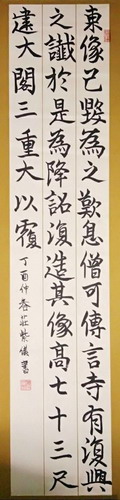 東像已毀為之歎息僧可傳言寺有復興
之讖於是為降詔復造其像高七十三尺
建大閣三重大以覆
丁酉仲春莊紫儀書